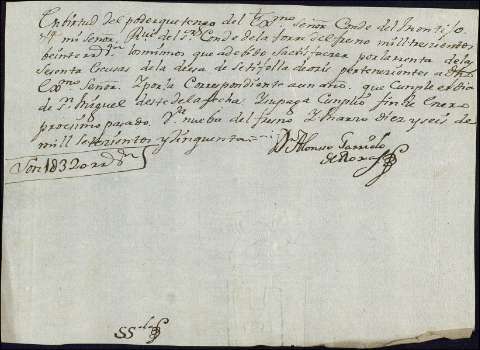 En birtud del poder que tengo del Exmo Señor Conde del Montijo
mi señor, Reciví del Sr Conde de la torre del fresno mil tresientos
beinte rrs vn los mismos que a debido sactisfacer por la renta de las
sesenta Escusas de la desa de pertenesientes a dho
Exmo Señor. Y por la Correspondiente a un año, que Cumple el dia
de Sn Miguel deste de la fecha. Cuya paga Cumplió fin de Enero
procsimo pasado. Va nueba del fresno y Marzo diez y seis de
mill setezientos y sinquenta
Dn Alonso
de Rojas
Son 1320 rrs vn